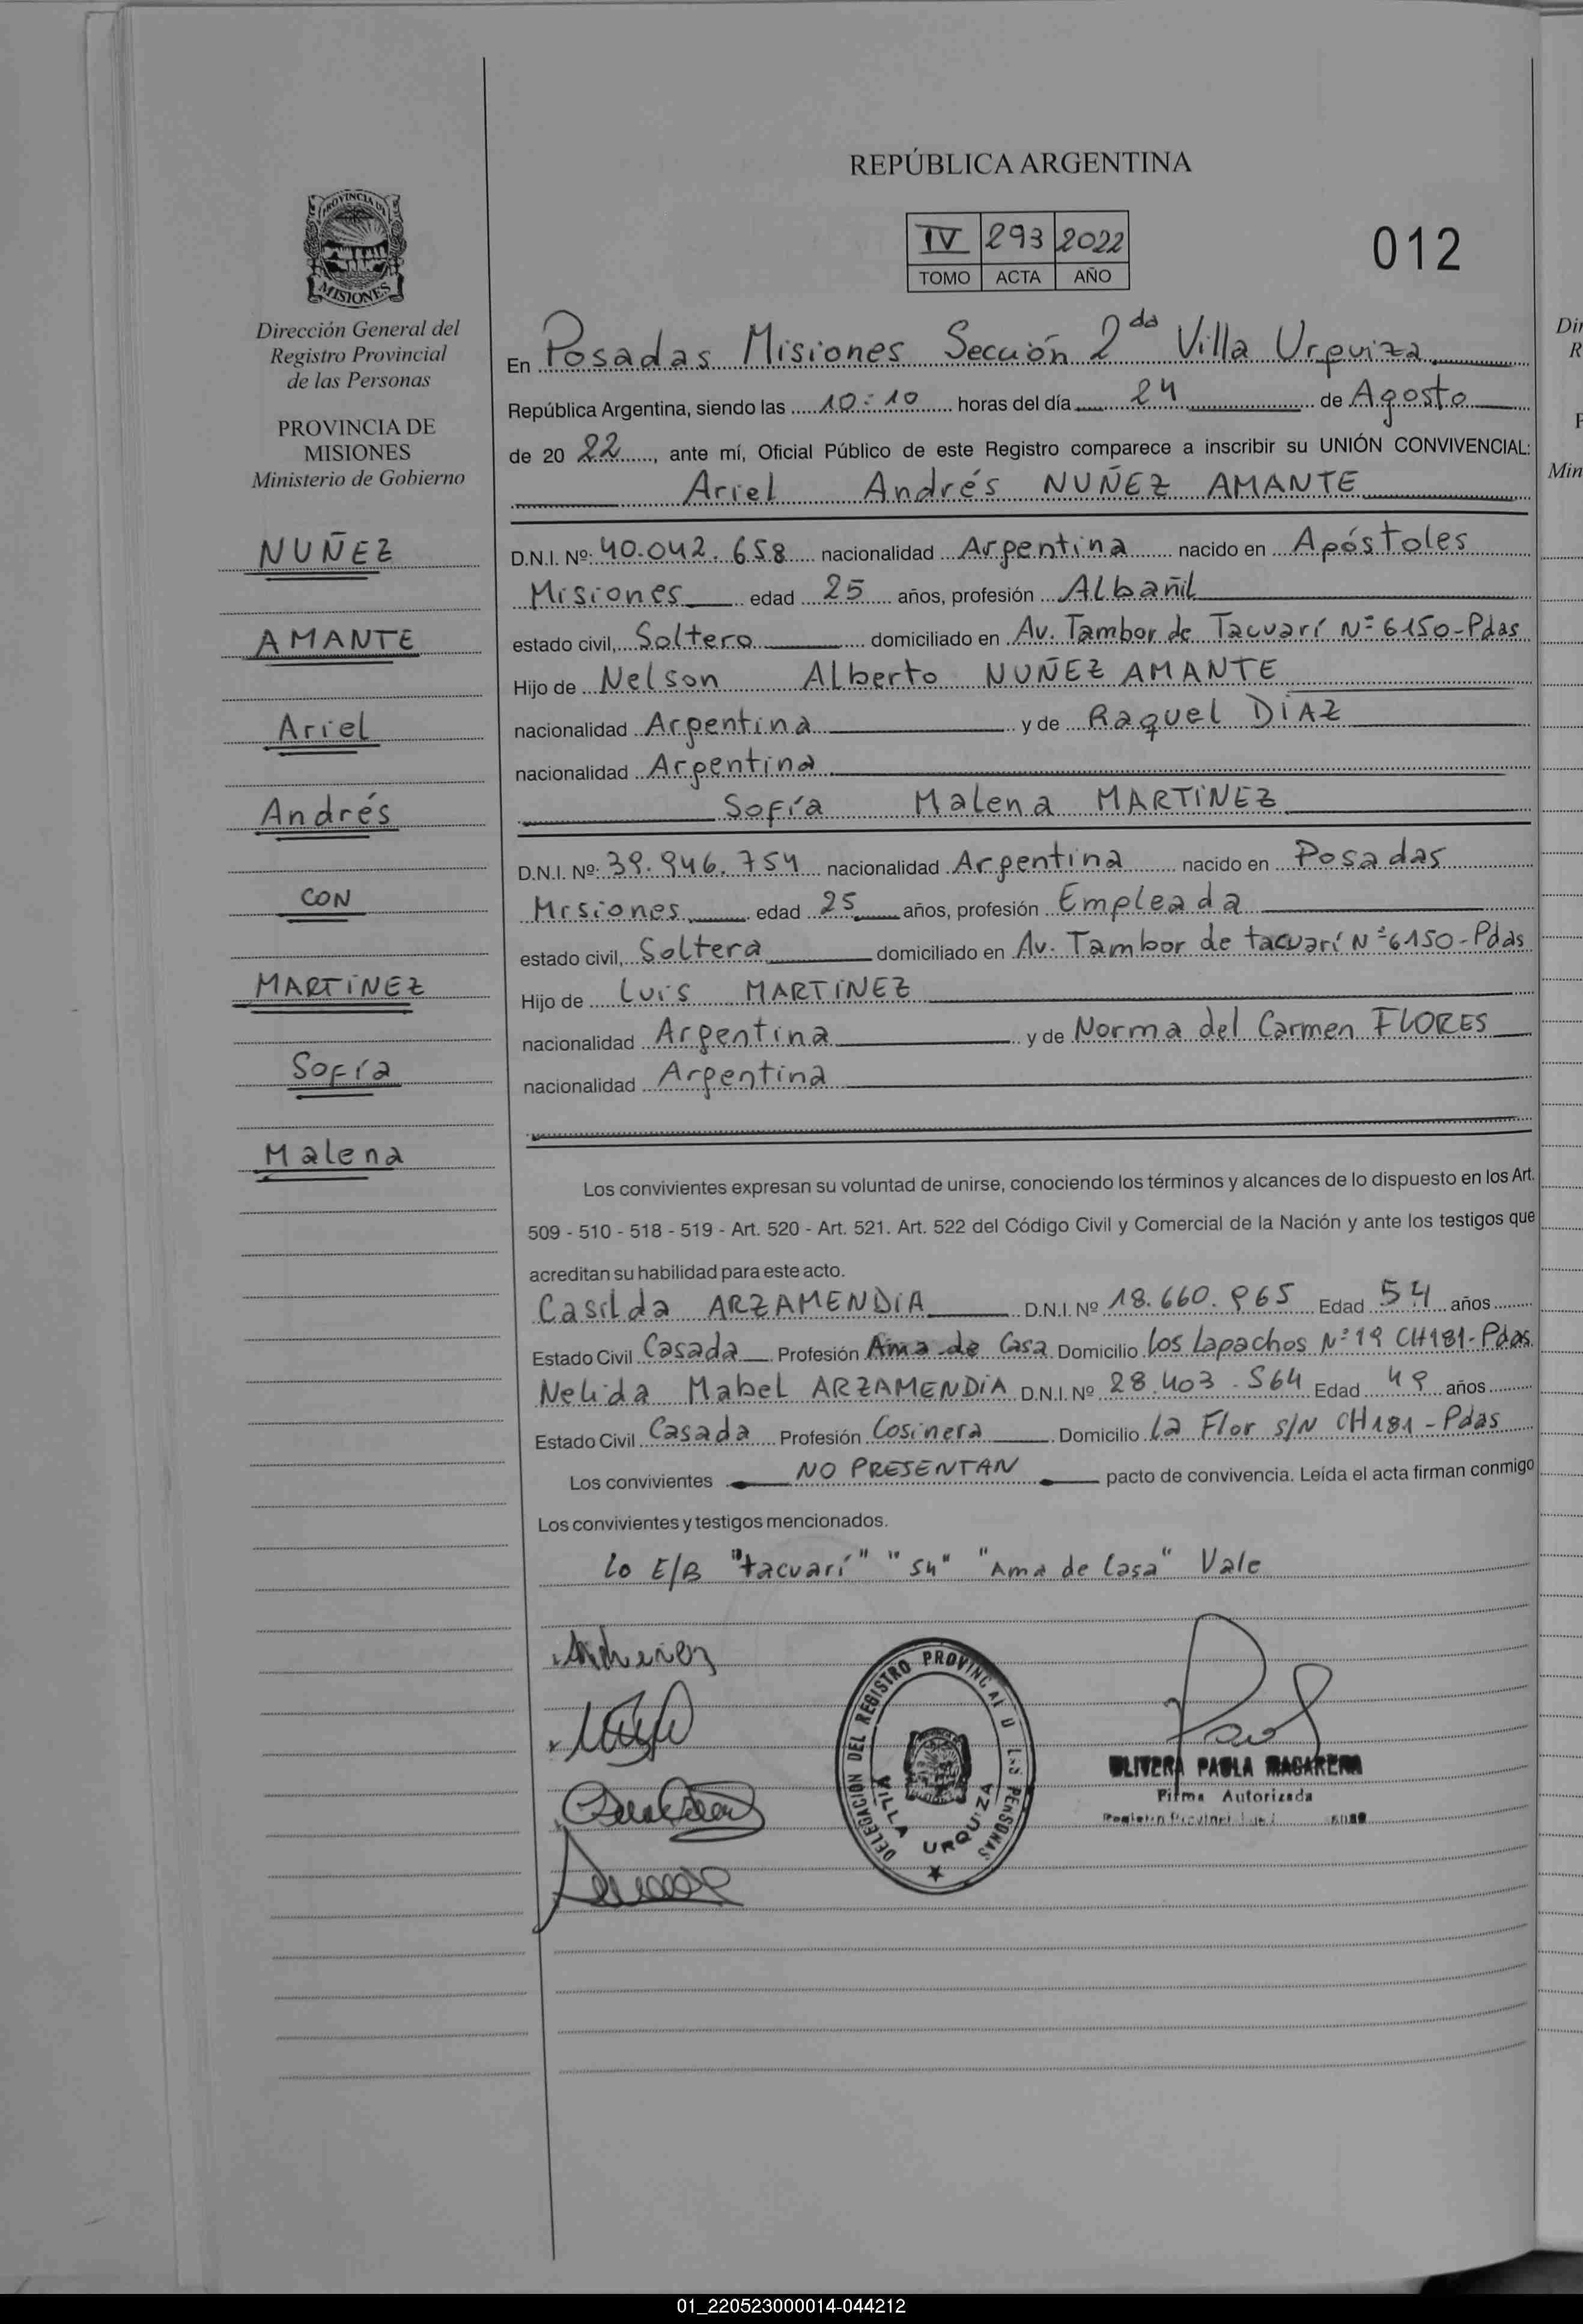 REPÚBLICA ARGENTINA
IV 293 2022
TOMO ACTA AÑO
012
PROVINCIA DE
MISIONES
Dirección General del
Registro Provincial
de las Personas
PROVINCIA DE
MISIONES
Ministerio de Gobierno
NUÑEZ
AMANTE
Ariel
Andrés
CON
MARTINEZ
Sofía
Malena
En Posadas Misiones Sección 2da Villa Urquiza
República Argentina, siendo las 10:10 horas del día 24 de Agosto
de 20 22, ante mí, Oficial Público de este Registro comparece a inscribir su UNIÓN CONVIVENCIAL:
Ariel Andrés NUÑEZ AMANTE
D.N.I. Nº: 40.042.658 nacionalidad Argentina nacido en Apóstoles
Misiones edad 25 años, profesión Albañil
estado civil, Soltero domiciliado en Av. Tambor de Tacuarí Nº 6150-Pdas
Hijo de Nelson Alberto NUÑEZ AMANTE
nacionalidad Argentina y de Raquel DIAZ
nacionalidad Argentina
Sofía Malena MARTINEZ
D.N.I. Nº: 39.946.754 nacionalidad Argentina nacido en Posadas
Misiones edad 25 años, profesión Empleada
estado civil, Soltera domiciliado en Av. Tambor de tacuarí Nº 6150-Pdas
Hijo de Luis MARTINEZ
nacionalidad Argentina y de Norma del Carmen FLORES
nacionalidad Argentina
Los convivientes expresan su voluntad de unirse, conociendo los términos y alcances de lo dispuesto en los Art.
509 - 510 - 518 - 519 - Art. 520 - Art. 521. Art. 522 del Código Civil y Comercial de la Nación y ante los testigos que
acreditan su habilidad para este acto.
Casilda ARZAMENDIA D.N.I. Nº 18.660.965 Edad 54 años
Estado Civil Casada Profesión Ama de Casa Domicilio Los Lapachos Nº 19 CH181-Pdas
Nelida Mabel ARZAMENDIA D.N.I. Nº 28.403.564 Edad 49 años
Estado Civil Casada Profesión Cosinera Domicilio La Flor S/N CH181-Pdas
Los convivientes NO PRESENTAN pacto de convivencia. Leída el acta firman conmigo
Los convivientes y testigos mencionados.
Lo E/B "tacuarí" "54" "Ama de Casa" Vale
DELEGACION DEL REGISTRO PROVINCIAL D LAS PERSONAS
VILLA URQUIZA
OLIVERA PAOLA MACARENA
Firma Autorizada
01_220523000014-044212